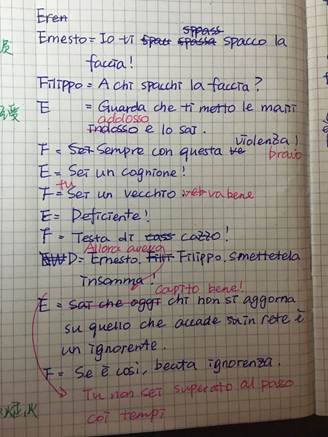 Eren
sppass
Ernesto = Io ti spau spassa spacco la
faccia!
Filippo = A chi spacchi la faccia?
E = Guarda che ti metto le mani
addosso
indosso e lo sai.
violenza!
F = Sei Sempre con questa ve bravo
E = Sei un cognione!
tu
F = Sei un vecchio va bene
E = Deficiente!
F = Testa di cass cazzo!
Allora aveva
D = Ernesto. Fili Filippo. Smettetela
insomma!
capito bene!
E = sai che oggi chi non si aggorna
su quello che accade su in rete è
un ignorente.
F = Se è così, beata ignorenza.
Tu non sei superato al passo
coi tempi